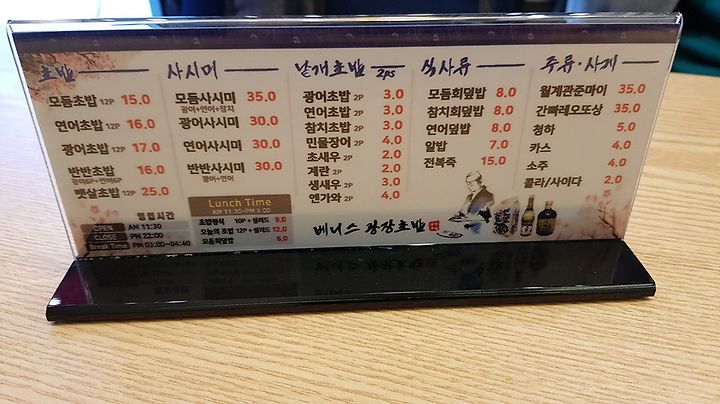 초밥
모둠초밥 12P 15.0
연어초밥 12P 16.0
광어초밥 12P 17.0
반반초밥 16.0
광어6P+연어6P
뱃살초밥 12P 25.0
영업시간
OPEN AM 11:30
CLOSE PM 22:00
Break Time PM 03:00~04:40
사시미
모둠사시미 35.0
광어+연어+참치
광어사시미 30.0
연어사시미 30.0
반반사시미 30.0
광어+연어
Lunch Time
AM 11:30~PM 3:00
초밥정식 10P+샐러드 9.0
오늘의 초밥 12P+샐러드 12.0
모둠회덮밥 6.0
낱개초밥 2ps
광어초밥 2P 3.0
연어초밥 2P 3.0
참치초밥 2P 3.0
민물장어 2P 4.0
초새우 2P 3.0
계란 2P 2.0
생새우 2P 3.0
엔가와 2P 4.0
식사류
모둠회덮밥 8.0
참치회덮밥 8.0
연어회덮밥 8.0
알밥 7.0
전복죽 15.0
주류·사케
월계관준마이 35.0
간빠레오또상 35.0
청하 5.0
카스 4.0
소주 4.0
콜라/사이다 2.0
베니스 광장초밥